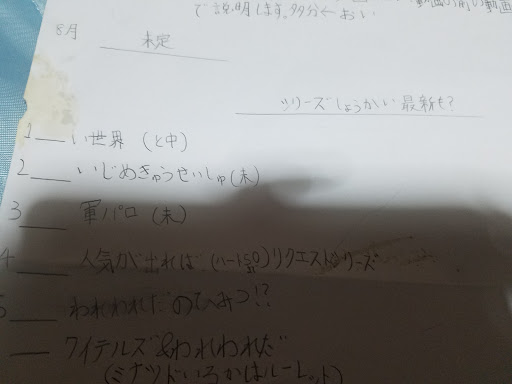 で説明します。多分←おい
8月 未定
ツリーズしょうかい 最新も?
1 い世界 (と中)
2 いじめきゅうせいしゅ(未)
3 軍パロ (未)
4 人気が出れば (ハート50 リクエストシリーズ
5 われわれだのひみつ!?
ワイテルズ&われわれだ
(ミナツドいろかはルーレット)